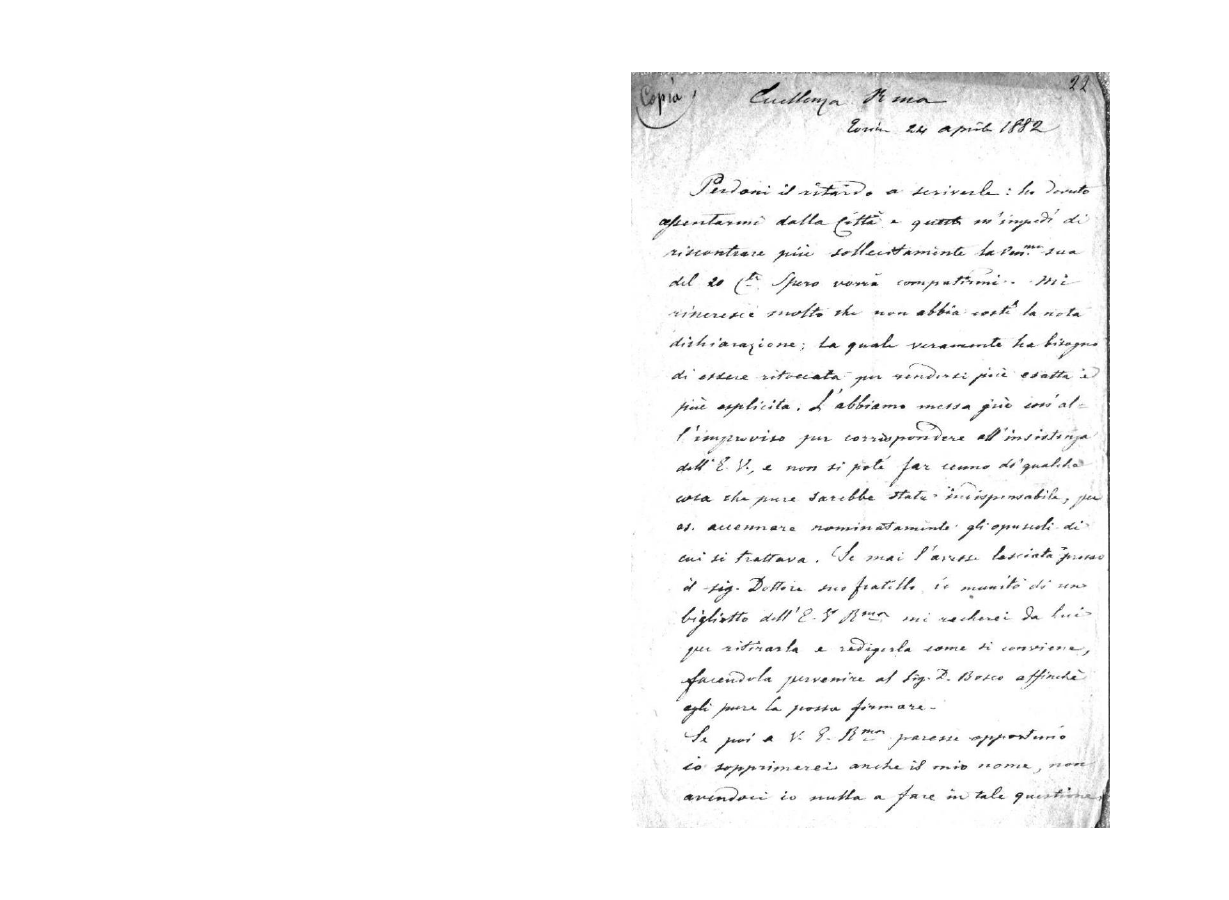 22
Copia
Eccellenza Rma
Torino 24 aprile 1882
Perdoni il ritardo a scriverle: ho dovuto
assentarmi dalla Città e questo m'impedì di
riscontrare più sollecitamente la Ven.ma sua
del 20 Cte. Spero vorrà compatirmi. Mi
rincresce molto che non abbia costì la nota
dichiarazione; la quale veramente ha bisogno
di essere ritoccata per rendersi più esatta e
più esplicita. L'abbiamo messa giù così al-
l'improviso per corrispondere all'insistenza
dell'E. V., e non si poté far cenno di qualche
cosa che pure sarebbe stata indispensabile, per
es. accennare nominatamente gli opuscoli di
cui si trattava. Se mai l'avesse lasciata presso
il sig. Dottore suo fratello io munito di un
biglietto dell'E. V. Rma mi recherei da lui
per ritirarla e redigerla come si conviene,
facendola pervenire al Sig. D. Bosco affinchè
egli pure la possa firmare.
Se poi a V. E. Rma paresse opportuno
io sopprimerei anche il mio nome, non
avendoci io nulla a fare in tale questione